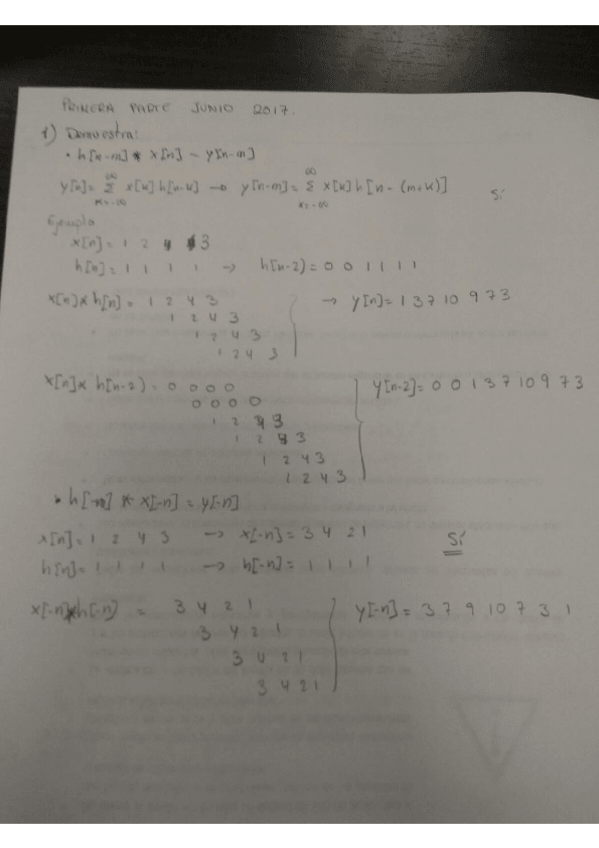 PRIMERA PARTE JUNIO 2017.
1) Demuestra:
• h[n-m] * x[n] = y[n-m]
y[n] = ∞ Σ k=-∞ x[k] h[n-k] → y[n-m] = ∞ Σ k=-∞ x[k] h[n-(m+k)] Sí
Ejemplo
x[n] = 1 2 4 3
h[n] = 1 1 1 1 → h[n-2) = 0 0 1 1 1 1
x[n] * h[n] = 1 2 4 3 → y[n] = 1 3 7 10 9 7 3
1 2 4 3
1 2 4 3
1 2 4 3
x[n] * h[n-2) = 0 0 0 0 y[n-2] = 0 0 1 3 7 10 9 7 3
0 0 0 0
1 2 4 3
1 2 4 3
1 2 4 3
1 2 4 3
• h[-n] * x[-n] = y[-n]
x[n] = 1 2 4 3 → x[-n] = 3 4 2 1 Sí
h[n] = 1 1 1 1 → h[-n] = 1 1 1 1
x[-n] * h[-n) = 3 4 2 1 y[-n] = 3 7 9 10 7 3 1
3 4 2 1
3 4 2 1
3 4 2 1